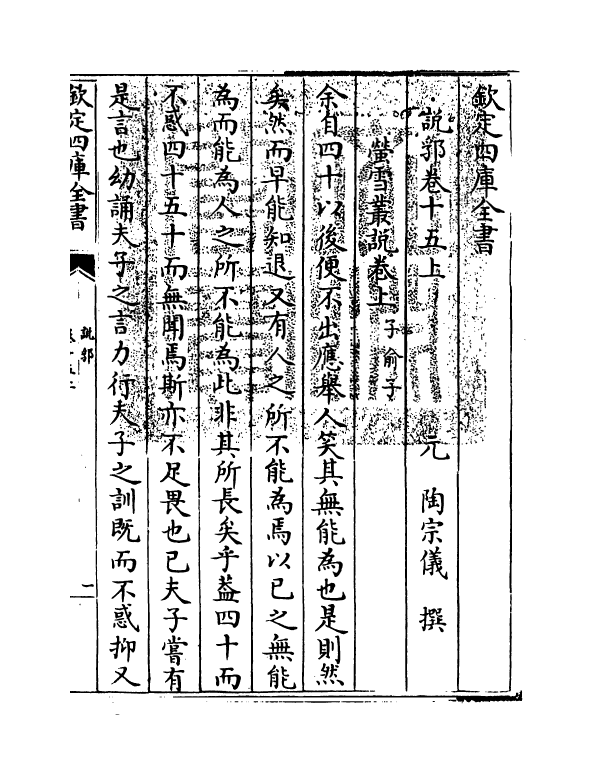 欽定四庫全書
說郛卷十五上 元 陶宗儀 撰
螢雪叢說卷上 子俞子
余自四十以後便不出應舉人笑其無能為也是則然
矣然而早能知退又有人之所不能為焉以已之無能
為而能為人之所不能為此非其所長矣乎葢四十而
不惑四十五十而無聞焉斯亦不足畏也已夫子嘗有
是言也幼誦夫子之言力行夫子之訓既而不惑抑又
欽定四庫全書
說郛
一